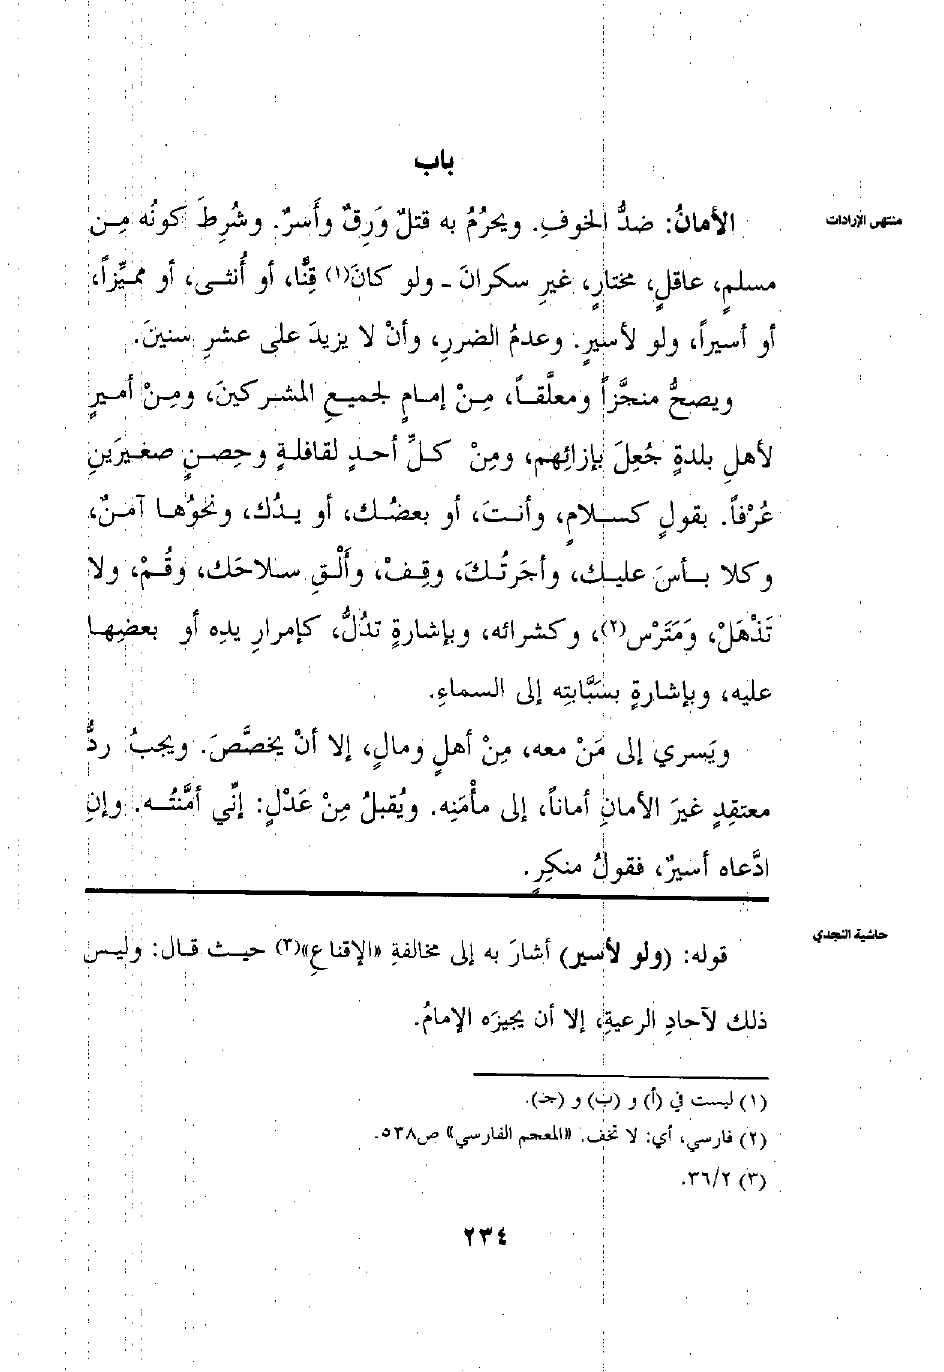 باب
منتهى الإرادات
الأمانُ: ضدُّ الخوفِ. ويحرُمُ به قتلٌ وَرِقٌ وأَسرٌ. وشُرِطَ كونُه مِن
مسلمٍ، عاقلٍ، مختارٍ، غيرِ سكرانَ ـ ولو كانَ(١) قِنًّا، أو أُنثى، أو مميِّزاً،
أو أسيراً، ولو لأسيرٍ. وعدمُ الضررِ، وأنْ لا يزيدَ على عشرِ سنينَ.
ويصحُّ منجَّزاً ومعلَّقاً، مِنْ إمامٍ لجميعِ المشركينَ، ومِنْ أميرٍ
لأهلِ بلدةٍ جُعِلَ بإزائِهم، ومِنْ كلِّ أحدٍ لقافلةٍ وحِصنٍ صغيرَينِ
عُرْفاً. بقولٍ كسلامٍ، وأنتَ، أو بعضُك، أو يدُك، ونحوُها آمنٌ،
وكلا بأسَ عليك، وأجَرتُكَ، وقِفْ، وأَلْقِ سلاحَك، وقُمْ، ولا
تَذْهَلْ، وَمَتَرْس(٢)، وكشرائه، وبإشارةٍ تدُلُّ، كإمرارِ يدِه أو بعضِها
عليه، وبإشارةٍ بسَبَّابتِه إلى السماءِ.
ويَسري إلى مَنْ معه، مِنْ أهلٍ ومالٍ، إلا أنْ يخصَّصَ. ويجبُ ردُّ
معتقِدٍ غيرَ الأمانِ أماناً، إلى مأْمَنِه. ويُقبلُ مِنْ عَدْلٍ: إنِّي أمَّنتُه. وإنِ
ادَّعاه أسيرٌ، فقولُ منكِرٍ.
حاشية النجدي
قوله: (ولو لأسير) أشارَ به إلى مخالفةِ «الإقناعِ»(٣) حيث قال: وليس
ذلك لآحادِ الرعيةِ، إلا أن يجيزَه الإمامُ.
(١) ليست في (أ) و (ب) و (جـ).
(٢) فارسي، أي: لا تخف. «المعجم الفارسي» ص٥٣٨.
(٣) ٣٦/٢.
٢٣٤